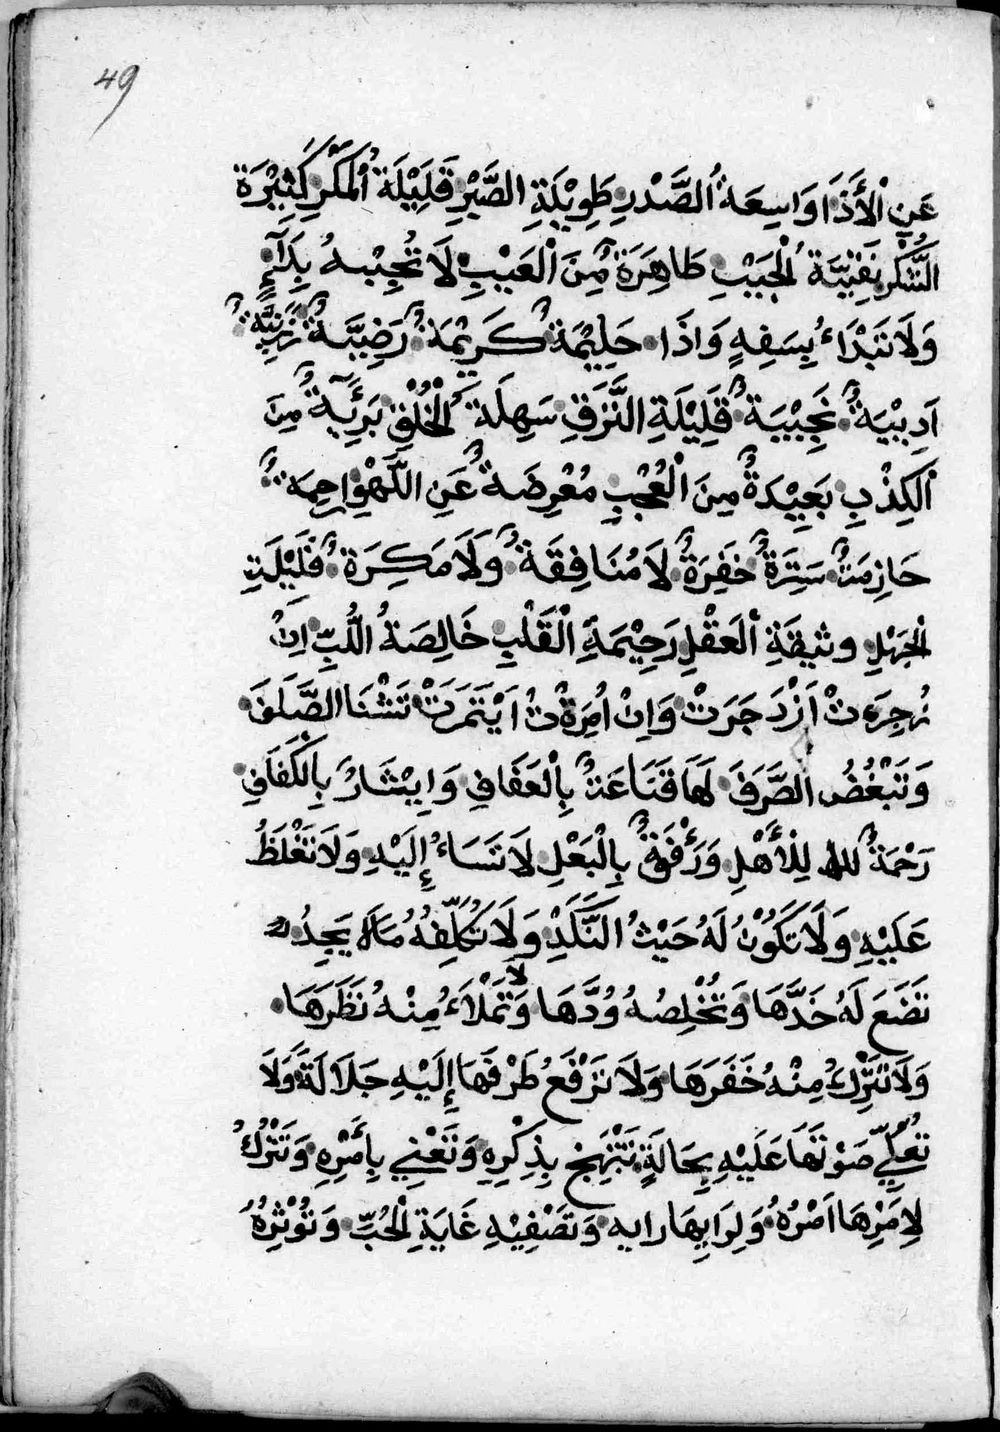 49
عَنِ الْأَذَا وَاسِعَةُ الصَّدْرِ طَوِيْلَةِ الصَّبْرِ قَلِيْلَةُ الْمَكْرِ كَثِيْرَةُ
الشُّكْرِ نَقِيَّةَ الْجَيْبِ طَاهِرَةٌ مِنَ الْعَيْبِ لَا تُجِيْبهُ بِدَآمٍ
وَلَا تَبْدَاءُ بِسَفِهٍ وَاذَا حَلِيْمَةٌ كَرِيْمَةٌ رَضِيَّةٌ زَيِّنَةٌ
اَدِيْبِيَةٌ نَجِيْبَةٌ قَلِيْلَةِ النَّزَقِ سَهِلَةُ الْخُلْقِ بَرِيَّةٌ مِنَ
الْكِذْبِ بَعِيْدَةٌ مِنَ الْعُجْبِ مُعْرِضَةٌ عَنِ اللَّهْوِ رحِمَةٌ
حَازِمَتٌ سَتِرَةٌ خَفِرَةٌ لَا مُنَافِقَةٌ وَلَا مَكِرَةٌ قَلِيْلَتِ
الْجَهْلِ وثيقَةِ الْعَقْلِ رَحِيْمَةِ الْقَلْبِ خَالِصَةُ اللُّبِّ اِنْ
زُجِرَتْ اَزْدَجَرَتْ وَاِنْ اُمِرَةْتْ اَيْتَمَرَتْ تَشْنَا الصَّلَفَ
وَتَبْغُضُ الصَّرَفَ لَهَا قَنَاعَتٌ بِالْعَفَافِ وَاِيْثَارٌ بِالْكَفَافِ
رَحْمَةٌ لله لِلْأَهْلِ وَرَءْفَةٌ بِالْبَعْلِ لَا تَسَاءُ إِلَيْهِ وَلَا تَغْلَظُ
عَلَيْهِ وَلَا تَكُوْنُ لَهُ حَيْثُ النَّكَدِ وَلَا تُكَلِّفُهُ مَالَا يَجِدُ
تَضَعَ لَهُ خَدَّهَا وَتُخْلِصُهُ وُدَّهَا وَلَا تَمْلَاءُ مِنْهُ نَظَرَهَا
وَلَا تَتْرُكُ مِنْهُ خَفَرَهَا وَلَا تَرْفَعُ طَرْفَهَا إِلَيْهِ جَلَالَةً وَلَا
تُعَلِّي صَوْتَهَا عَلَيْهِ بِحَالَةٍ تَبْتَهِج بِذِكْرِهِ وَتَعْنِي بِأَمْرِهِ وَتَتْرُكُ
لِاَمْرِهَا اَمْرُهُ وَلِرَايِهَا رايه وَتَصْفِيْهِ غَايَةِ الْحُبِّ وَتُوْثِرُهُ